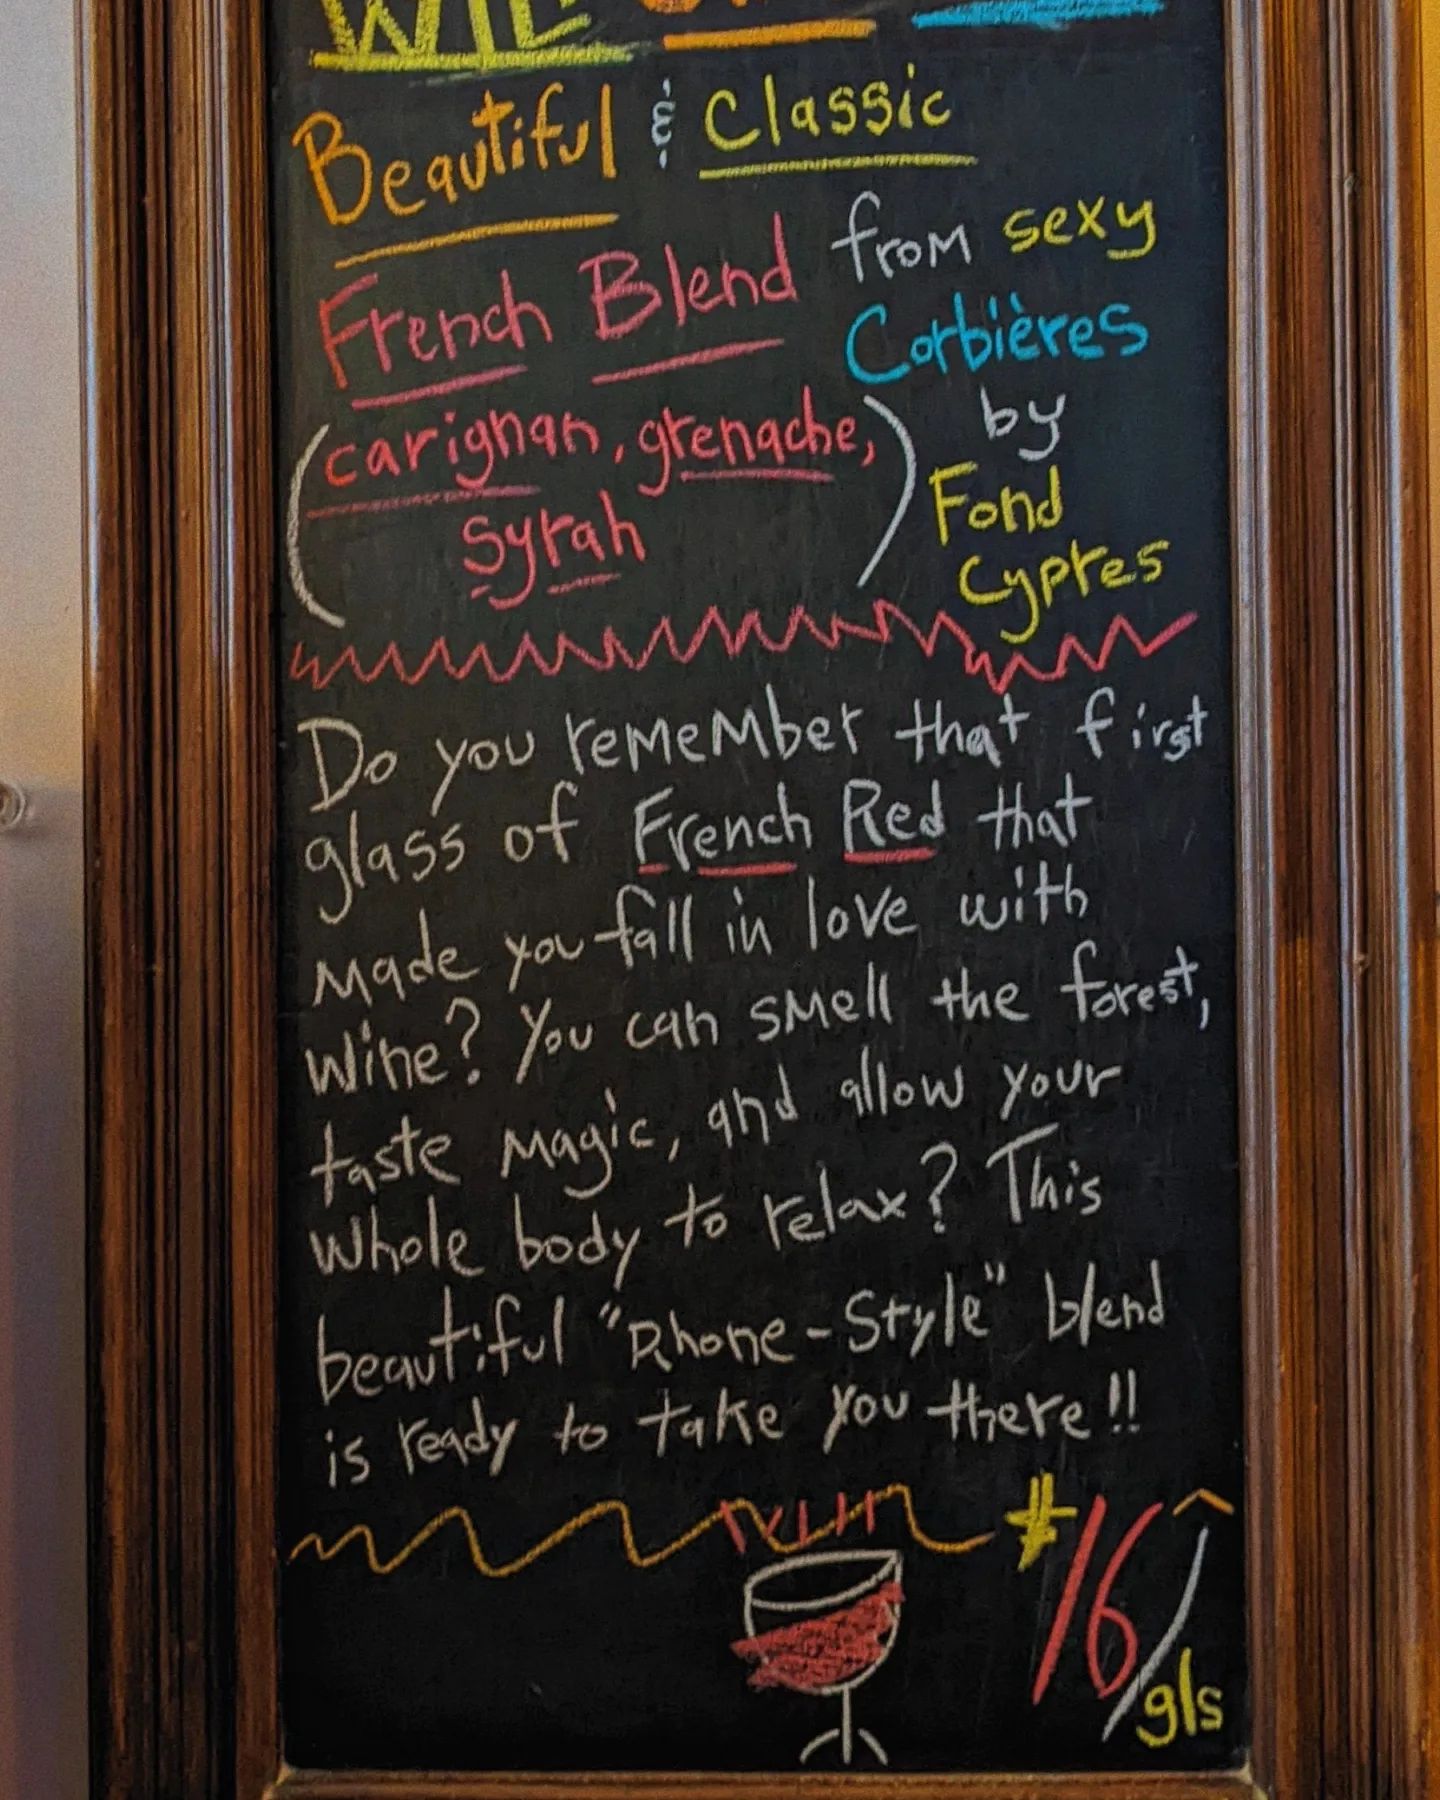 Beautiful & Classic
French Blend from sexy
Corbières
(carignan, grenache,
syrah)
by
Fond
Cypres
Do you remember that first
glass of French Red that
made you fall in love with
wine? You can smell the forest,
taste magic, and allow your
whole body to relax? This
beautiful "Rhone-Style" blend
is ready to take you there!!
$16/gls